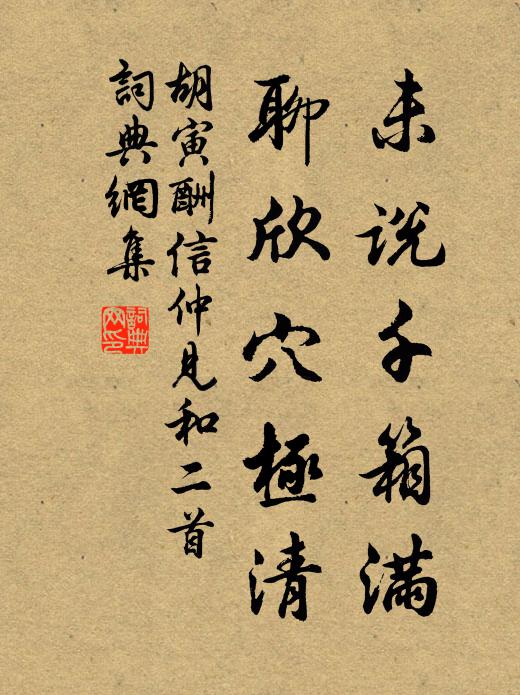 未説千箱滿
聊欣穴極清
胡寅酬信仲見和二首
詞典網集
詞典网印